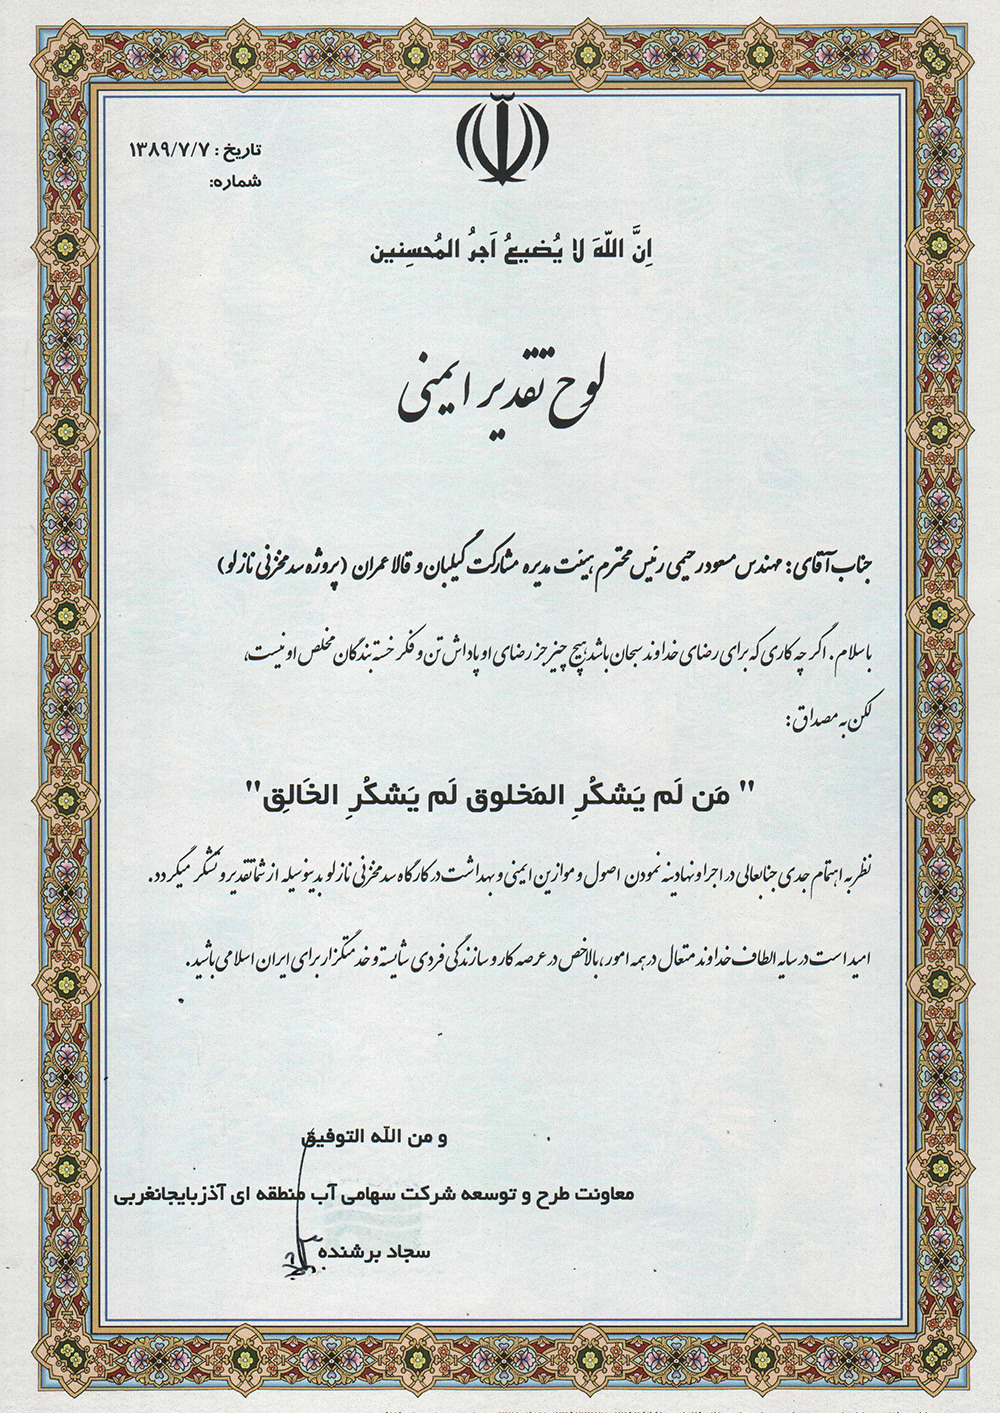 تاریخ : ۱۳۸۹/۷/۷
شماره:
اِنَّ اللّهَ لا یُضیعُ اَجرُ المُحسِنین
لوح تقدیر ایمنی
جناب آقای: مهندس مسعود رحیمی رئیس محترم هیئت مدیره مشارکت گیلبان و قالا عمران (پروژه سد مخزنی نازلو)
باسلام. اگر چه کاری که برای رضای خداوند سبحان باشد هیچ چیز جز رضای او پاداش تن و فکر خسته بندگان مخلص او نیست،
لکن به مصداق:
" مَن لَم یَشکُرِ المَخلوق لَم یَشکُرِ الخَالِق"
نظر به اهتمام جدی جنابعالی در اجرا و نهادینه نمودن اصول و موازین ایمنی و بهداشت در کارگاه سد مخزنی نازلو بدینوسیله از شما تقدیر و تشکر میگردد.
امید است در سایه الطاف خداوند متعال در همه امور، بالاخص در عرصه کار و سازندگی فردی شایسته و خدمتگزار برای ایران اسلامی باشید.
و من الله التوفیق
معاونت طرح و توسعه شرکت سهامی آب منطقه ای آذربایجانغربی
سجاد برشنده